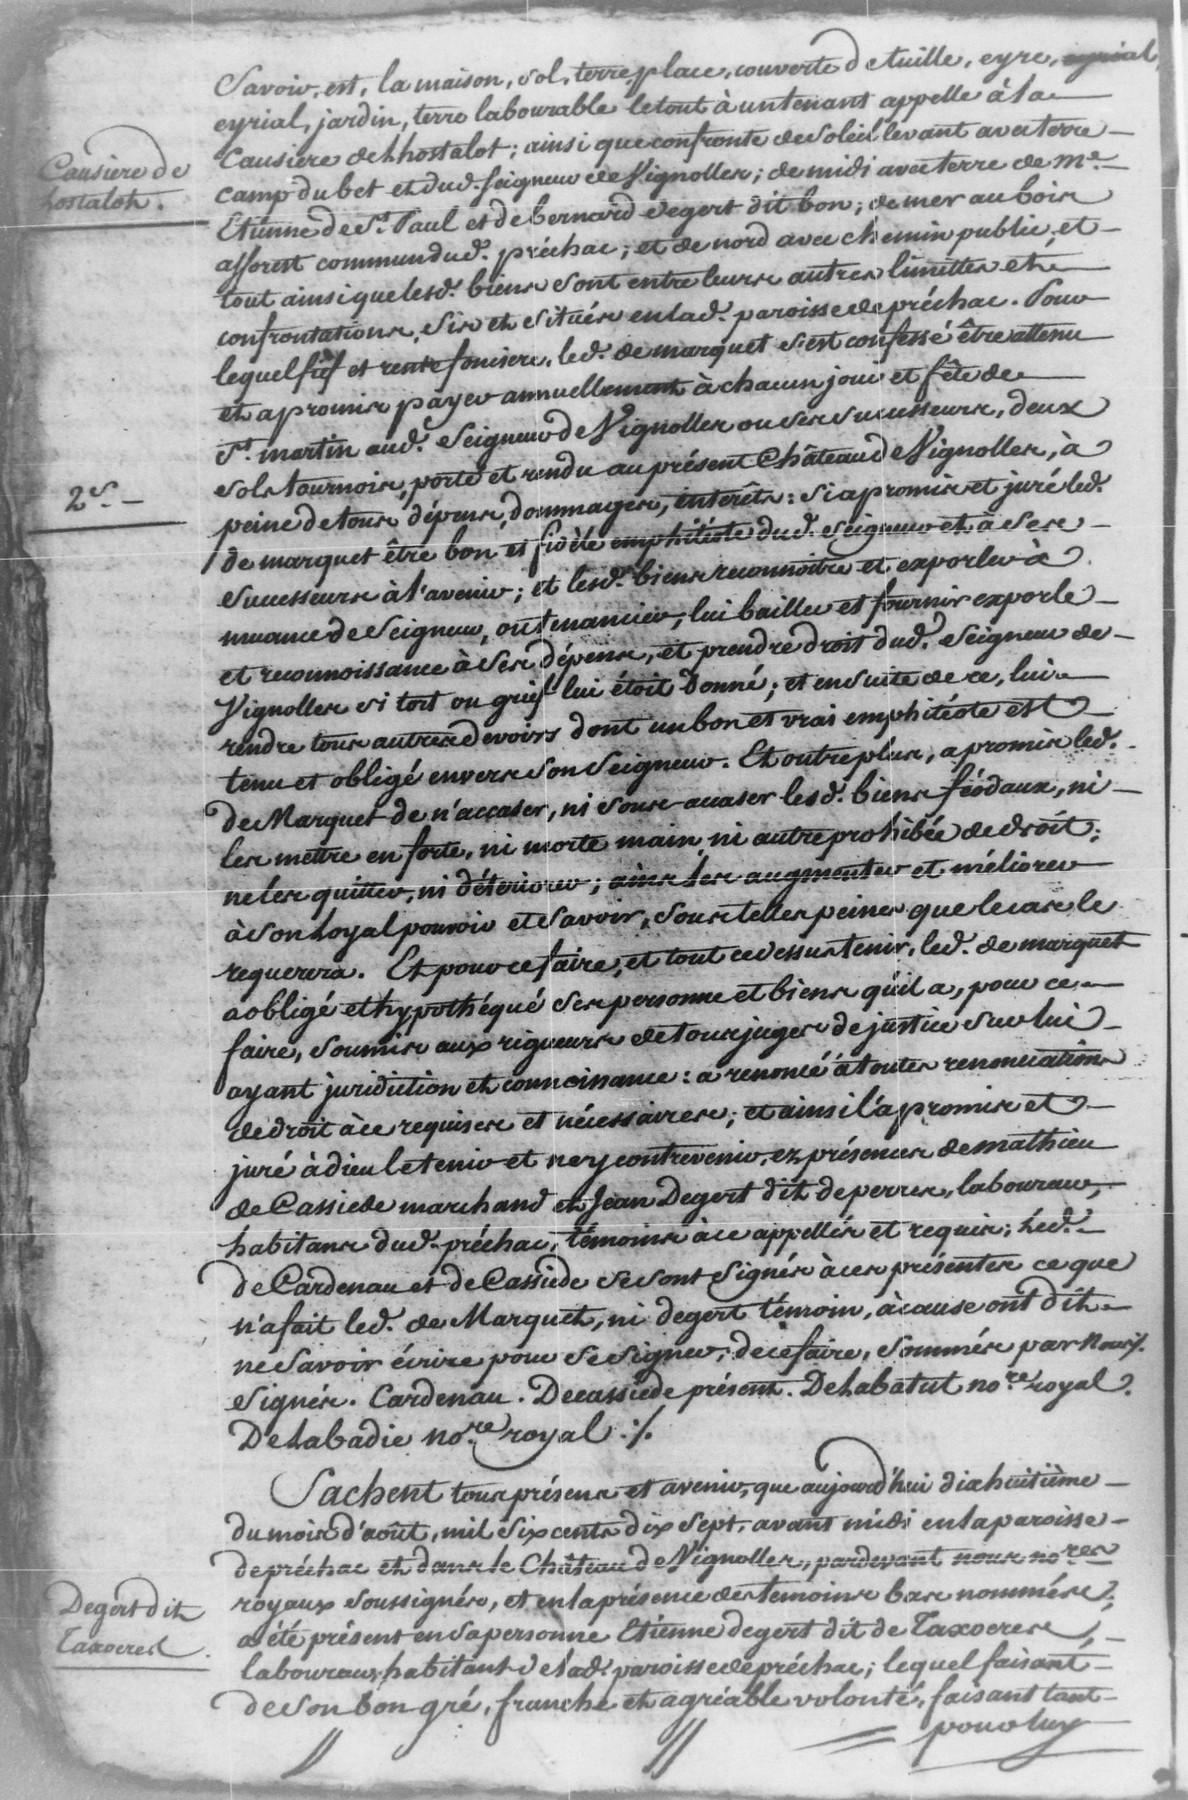 Savoir, est, la maison, sol, terre, place, couverte de tuille, eyre,
eyrial, jardin, terre labourable le tout à un tenant appelle à la
Causiere de Lhostalot; ainsi que confronte de soleil levant avec terre
Causiere de
hostalot.
camp du bet et dud. seigneur de Vignolles; de midi avec terre de Me.
Etienne de St. Paul et de bernard degert dit bon; de mer au bois
afforest commun dud. préchac; et de nord avec chemin public, et
tout ainsi que lesd. biens sont entre leurs autres limittes et
confrontations, sis et situés en lad. paroisse de préchac. Pour
lequel fief et rente fonciere, led. de marquet s'est confessé être attenu
et a promis payer annuellement à chacun jour et fête de
St. martin aud. Seigneur de Vignolles ou ses successeurs, deux
sols tournois, porté et rendu au présent Château de Vignolles, à
2s.
peine de tous dépens, dommages, interêts: si a promis et juré led.
de marquet être bon et fidèle emphitéote dud. seigneur et à ses
successeurs à l'avenir; et lesd. biens reconnoitre et exporler à
muance de Seigneur, ou tenancier, lui bailler et fournir exporle
et reconnoissance à ses dépens, et prendre droit dud. Seigneur de
Vignolles si tort ou grief lui étoit donné; et ensuite de ce, lui
rendre tous autres devoirs dont un bon et vrai emphitéote est
tenu et obligé envers son Seigneur. Et outre plus, a promis led.
de Marquet de n'accaser, ni sous-accaser lesd. biens féodaux, ni
les mettre en forte, ni morte main, ni autre prohibée de droit;
ne les quitter, ni détériorer; ains les augmenter et méliorer
à son Loyal pouvoir et savoir, sous telles peines que le cas le
requerera. Et pour ce faire, et tout ce dessus tenir, led. de marquet
a obligé et hypothéqué ses personne et biens qu'il a, pour ce
faire, soumis aux rigueurs de tous juges de justice sur lui
ayant juridiction et connoissance: a renoncé à toutes renonciations
de droit à ce requises et nécessaires; et ainsi l'a promis et
juré à dieu le tenir et n'ey contrevenir, ez présences de mathieu
de Cassiede marchand et Jean Degert dit de perres, laboureur,
habitans dud. préchac, témoins à ce appellés et requis; Led.
de Cardenau et de Cassiede se sont signés à ces présentes ce que
n'a fait led. de Marquet, ni degert témoin, à cause ont dit
ne savoir écrire pour se signer, de ce faire, sommés par Nous.
Signés. Cardenau. Decassiede présent. De Labatut nore. royal.
De Labadie nore. royal ./.
Sachent tous présens et avenir, que aujourd'hui dix huitième
du mois d'août, mil six cents dix sept, avant midi en la paroisse
de préchac et dans le Château de Vignolles, pardevant nous nores
Degert dit
Taxoeres.
royaux soussignés, et en la présence des témoins bas nommés,
a été présent en sa personne Etiénne degert dit de Taxoeres
laboureur, habitant de lad. paroisse de préchac; lequel faisant
de son bon gré, franche et agréable volonté, faisant tant
pour luy